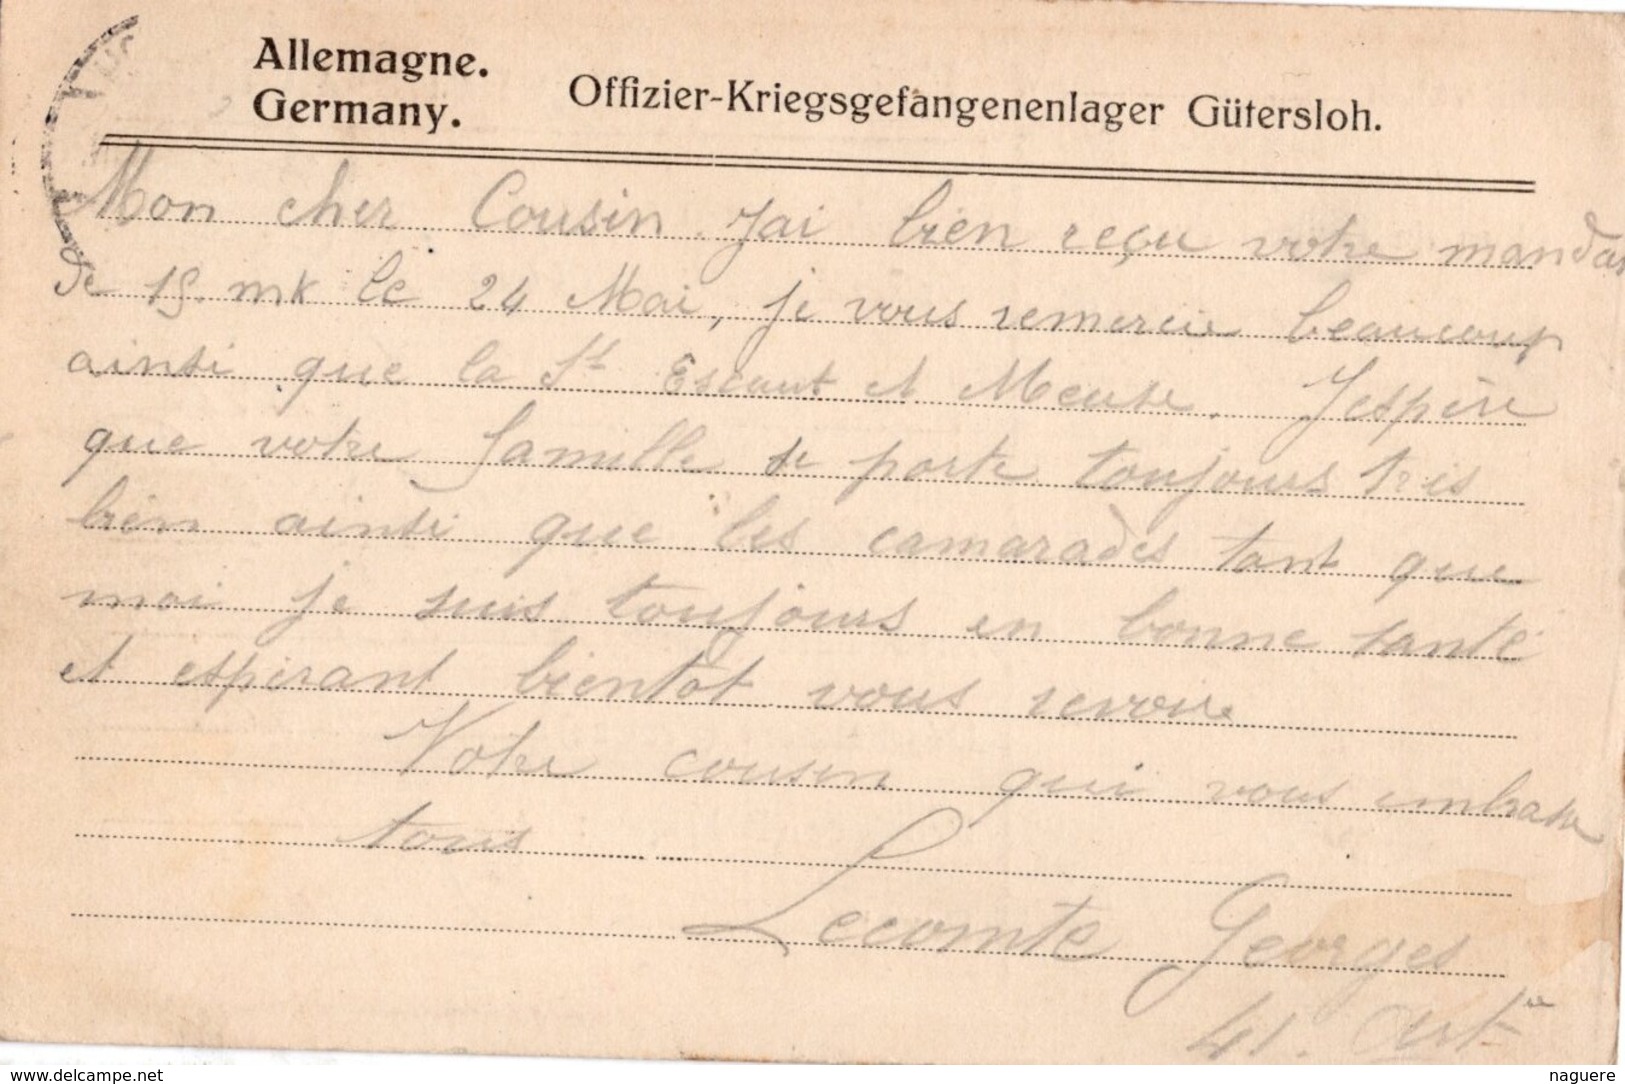 Allemagne.
Germany.
Offizier-Kriegsgefangenenlager Gütersloh.
Mon cher Cousin. J'ai bien reçu votre mandat
de 15. mk le 24 Mai, je vous remercie beaucoup
ainsi que la St Escaut et Meuse. J'espère
que votre famille se porte toujours très
bien ainsi que les camarades tant que
moi je suis toujours en bonne santé
et espérant bientôt vous revoir
Votre cousin qui vous embrasse
tous
Lecomte Georges
41. Artie
www.delcampe.net
naguere